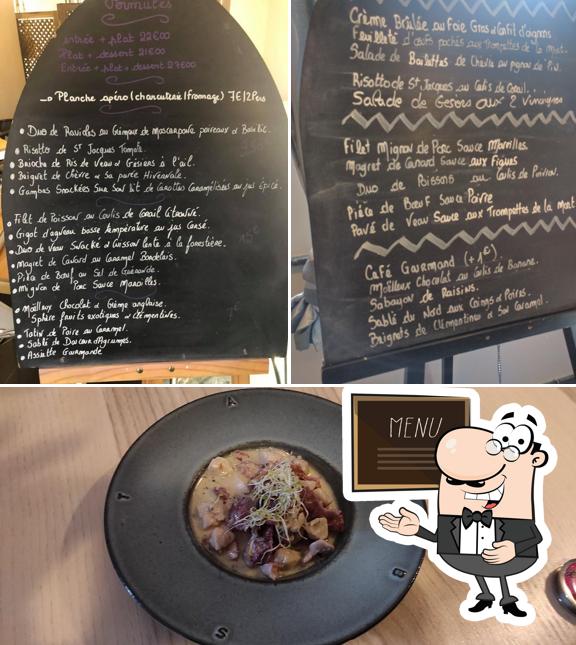 Formules
entrée + plat 22€00
Plat + dessert 21€00
Entrée + plat + dessert 27€00
Planche apéro (charcuterie/fromage) 7€/2Pers
Duo de Ravioles au Crémeux de Mascarpone poireaux & Basilic.
Risotto de St Jacques Tomate.
Brioche de Ris de Veau & Gésiers à l'ail.
Beignet de Chèvre & sa purée Hivernale.
Gambas Snackées Sur Son lit de Carottes Caramélisées au jus épicé.
Filet de Poisson au Coulis de Corail Citronné.
Gigot d'agneau basse température au jus Corsé.
Duo de Veau Snacké & Cuisson lente à la forestière.
Magret de Canard au Caramel Bordelais.
Pièce de Bœuf au Sel de Guérande.
Mignon de Porc Sauce Maroilles.
Moëlleux Chocolat & Crème anglaise.
Sphère fruits exotiques & Clémentines.
Tatin de Poire au Caramel.
Sablé de Douceur d'Agrumes.
Assiette Gourmande
Crème Brûlée au Foie Gras & Confit d'oignons
Feuilleté d'œufs pochés aux Trompettes de la Mort.
Salade de Boulettes de Chèvre au pignon de Pin.
Risotto de St Jacques au Coulis de Corail...
Salade de Gésiers aux 2 Vinaigres
Filet Mignon de Porc Sauce Maroilles.
Magret de Canard Sauce aux Figues
Duo de Poissons au Coulis de Poivron.
Pièce de Bœuf Sauce Poivre
Pavé de Veau Sauce aux Trompettes de la Mort
Café Gourmand (+1€)
Moëlleux Chocolat au Coulis de Banane.
Sabayon de Raisins.
Sablé du Nord aux Coings & Poires.
Beignets de Clémentines & Son Caramel.
MENU